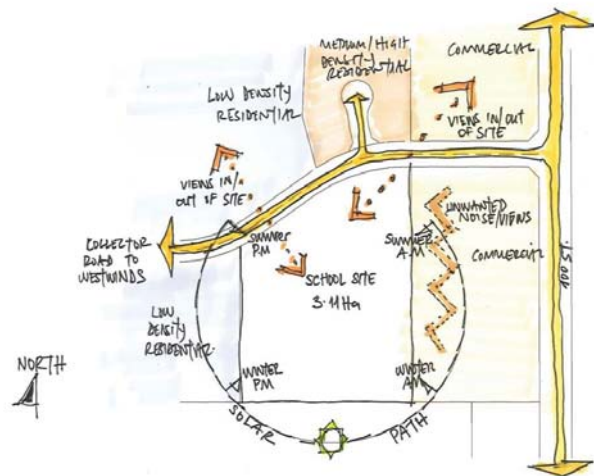 MEDIUM/HIGH
DENSITY
RESIDENTIAL
COMMERCIAL
LOW DENSITY
RESIDENTIAL
VIEWS IN/OUT
OF SITE
VIEWS IN/
OUT OF SITE
UNWANTED
NOISE/VIEWS
COLLECTOR
ROAD TO
WESTWINDS
SUMMER
P.M
SUMMER
A.M
COMMERCIAL
SCHOOL SITE
3.11Ha
LOW
DENSITY
RESIDENTIAL.
NORTH
WINTER
P.M
WINTER
A.M
SOLAR
PATH